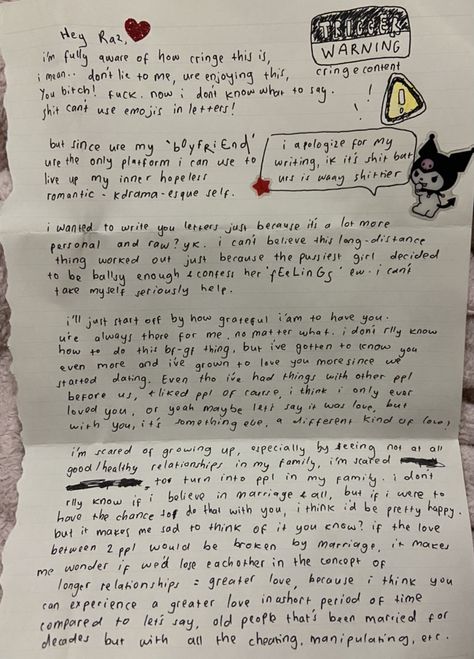 Hey Raz,
i'm fully aware of how cringe this is,
i mean.. don't lie to me, ure enjoying this,
You bitch! fuck. now i don't know what to say.
shit can't use emojis in letters!
WARNING
cringe content
!
but since ure my 'bOyfRiEnd'
ure the only platform i can use to
live up my inner hopeless
romantic - kdrama-esque self.
i apologize for my
writing, ik it's shit but
urs is waay shittier
i wanted to write you letters just because it's a lot more
personal and raw? yk. i can't believe this long-distance
thing worked out just because the pussiest girl decided
to be ballsy enough & confess her 'fEeLinGs' ew. i can't
take myself seriously help.
i'll just start off by how grateful i am to have you.
u're always there for me, no matter what. i don't rlly know
how to do this br-gf thing, but ive gotten to know you
even more and i've grown to love you more since we
started dating. Even tho i've had things with other ppl
before us, + liked ppl of course, i think i only ever
loved you, or yeah maybe let's say it was love, but
with you, it's something else, a different kind of love,
i'm scared of growing up, especially by seeing not at all
good/healthy relationships in my family, i'm scared
to turn into ppl in my family. i don't
rlly know if i believe in marriage & all, but if i were to
have the chance to do that with you, i think i'd be pretty happy.
but it makes me sad to think of it you know? if the love
between 2 ppl would be broken by marriage, it makes
me wonder if we'd lose eachother in the concept of
longer relationships = greater love, because i think you
can experience a greater love in a short period of time
compared to let's say, old people that's been married for
decades but with all the cheating, manipulating, etc.